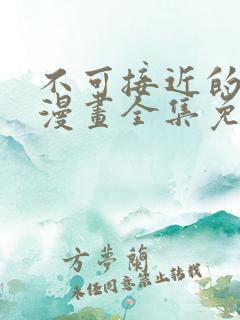 不可接近的
漫畫全集免
方夢蘭
未經同意禁止轉載